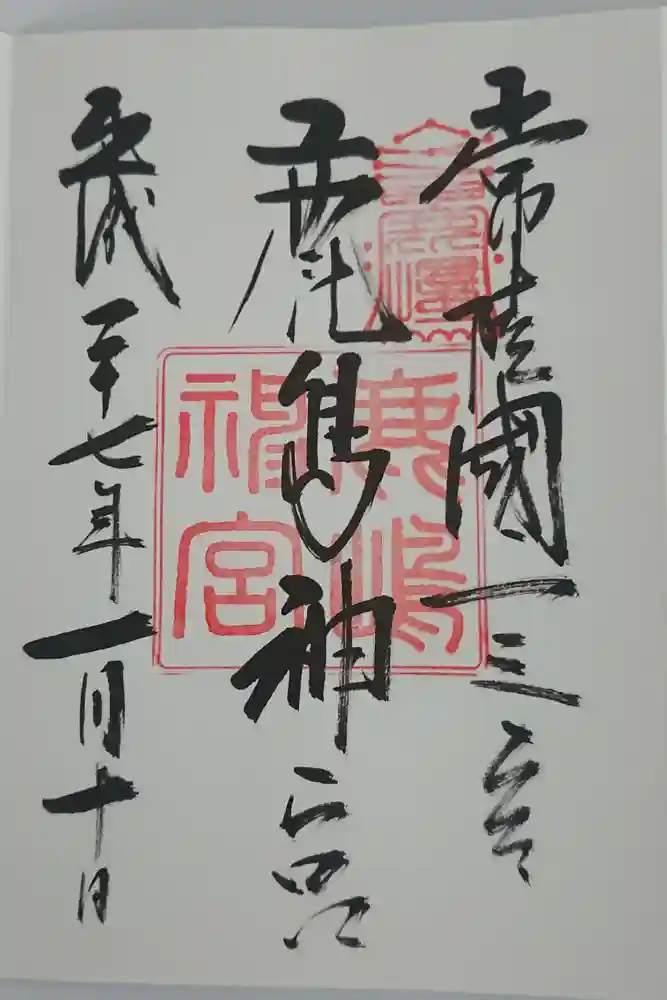 常陸國一之宮
鹿島神宮
平成二十七年一月十日
鹿嶋神宮